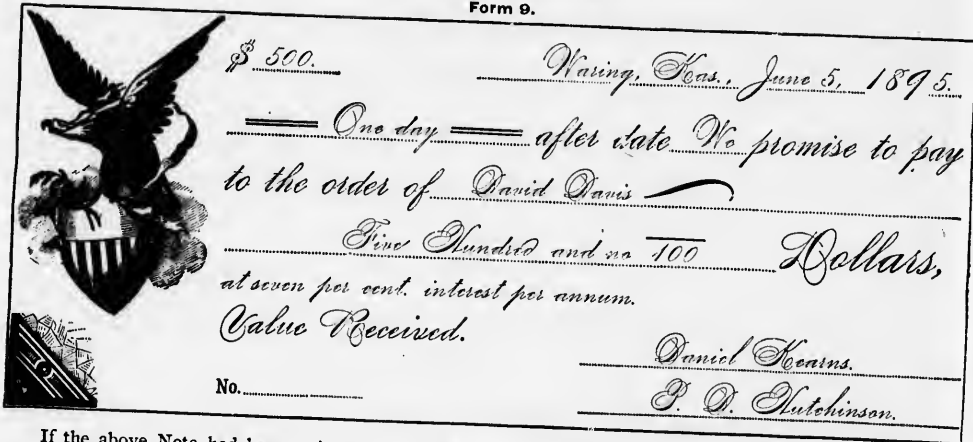 Form 9.
$ 500. Waring, Kas., June 5, 1895.
One day after date We promise to pay
to the order of David Davis
Five Hundred and no/100 Dollars,
at seven per cent. interest per annum.
Value Received.
Daniel Kearns.
No. P. D. Hutchinson.
If the above Note had